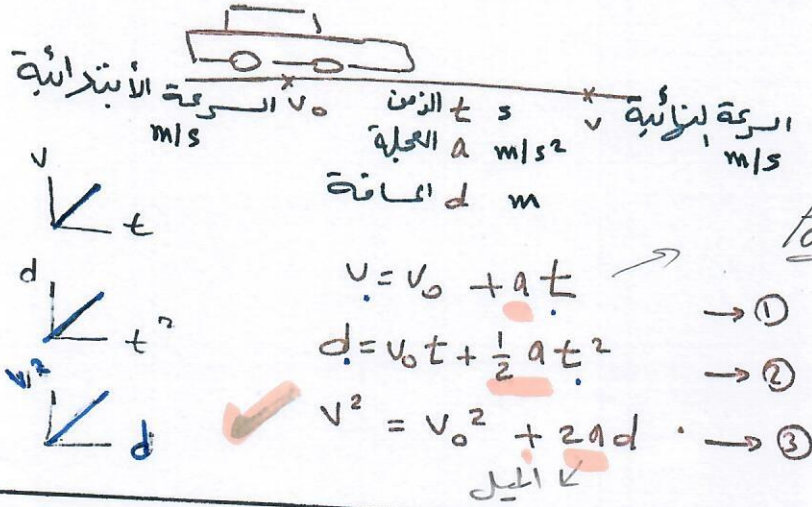 السرعة الأبتدائية v₀ m/s
الزمن t s
العجلة a m/s²
المسافة d m
السرعة النهائية v m/s
v t
d t²
v² d
v = v₀ + a t → ①
d = v₀ t + ½ a t² → ②
v² = v₀² + 2 a d → ③
الميل